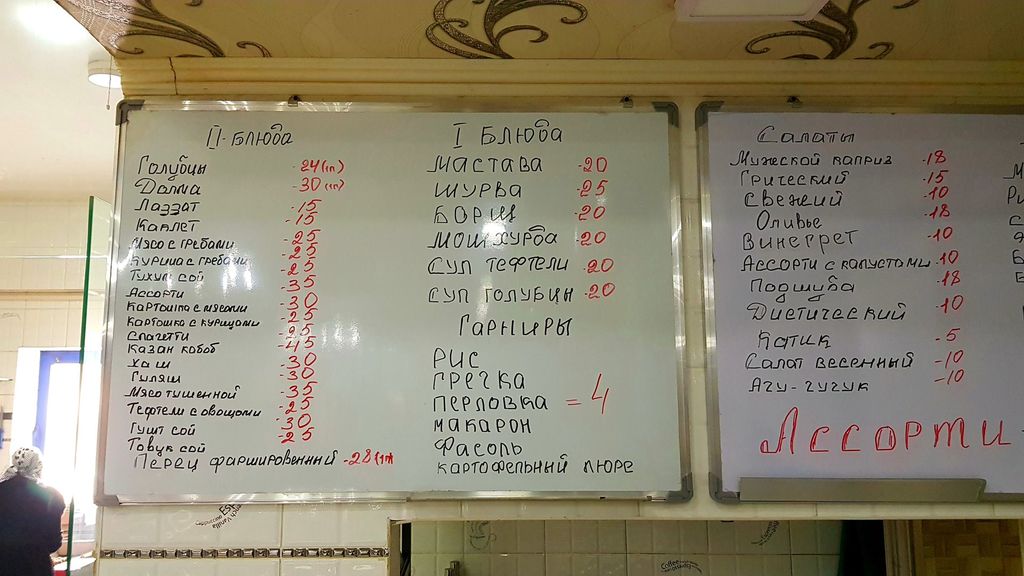 II-БЛЮДА
Голубцы -24(1п)
Долма -30(1п)
Лаззат -15
Каклет -15
Мясо с гребами -25
Курица с гребами -25
Тухум сой -25
Ассорти -35
Картошка с мясоми -30
Картошка с курицоми -25
Спагетти -25
Казан кобоб -45
Хаш -30
Гуляш -30
Мясо тушенной -35
Тефтели с овощоми -25
Гушт сой -30
Товук сой -25
Перец фаршированный -28(1п)
I БЛЮДА
МАСТАВА -20
ШУРВА -25
БОРЩ -20
МОШХУРДА -20
СУП ТЕФТЕЛИ -20
СУП ГОЛУБЦЫ -20
ГАРНИРЫ
РИС
ГРЕЧКА
ПЕРЛОВКА = 4
МАКАРОН
ФАСОЛЬ
КАРТОФЕЛЬНЫЙ ПЮРЕ
САЛАТЫ
Мужской каприз -18
Грический -15
Свежий -10
Оливье -18
Винегрет -10
Ассорти с капустоми -10
Подшуба -18
Диетический -10
Катик -5
Салат весенный -10
Ачу-чучук -10
Ассорти